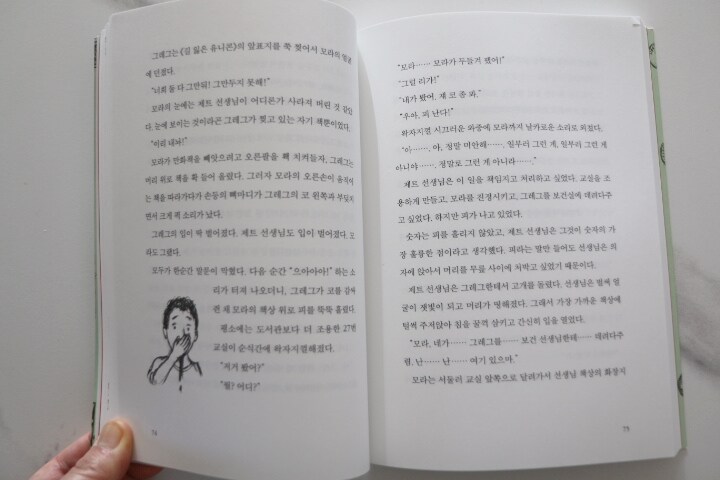 그레그는 《길 잃은 유니콘》의 앞표지를 쭉 찢어서 모라의 얼굴
에 던졌다.
"너희 둘 다 그만둬! 그만두지 못해!"
모라의 눈에는 제트 선생님이 어디론가 사라져 버린 것 같았
다. 눈에 보이는 것이라곤 그레그가 찢고 있는 자기 책뿐이었다.
"이리 내놔!"
모라가 만화책을 빼앗으려고 오른팔을 뻗쳐들자, 그레그는
머리 위로 책을 확 들어 올렸다. 그러자 모라의 오른손이 움직이
는 책을 따라가다가 손등의 뼈마디가 그레그의 코 왼쪽과 부딪치
면서 크게 퍽 소리가 났다.
그레그의 입이 딱 벌어졌다. 제트 선생님도 입이 벌어졌다. 모
라도 그랬다.
모두가 한순간 말문이 막혔다. 다음 순간 "으아아아!" 하는 소
리가 터져 나오더니, 그레그가 코를 감싸
쥔 채 모라의 책상 위로 피를 뚝뚝 흘렸다.
평소에는 도서관보다 더 조용한 27번
교실이 순식간에 왁자지껄해졌다.
"저거 봤어?"
"뭘? 어디?"
74
"모라…… 모라가 두들겨 팼어!"
"그럴 리가!"
"내가 봤어, 쟤 코 좀 봐."
"우아, 피 난다!"
왁자지껄 시끄러운 와중에 모라까지 날카로운 소리로 외쳤다.
"아……, 아, 정말 미안해……. 일부러 그런 게, 일부러 그런 게
아니야……, 정말로 그런 게 아니라……."
제트 선생님은 이 일을 책임지고 처리하고 싶었다. 교실을 조
용하게 만들고, 모라를 진정시키고, 그레그를 보건실에 데려다주
고 싶었다. 하지만 피가 나고 있었다.
숫자는 피를 흘리지 않았고, 제트 선생님은 그것이 숫자의 가
장 훌륭한 점이라고 생각했다. 피라는 말만 들어도 선생님은 의
자에 앉아서 머리를 무릎 사이에 처박고 싶었기 때문이다.
제트 선생님은 그레그한테서 고개를 돌렸다. 선생님은 벌써 얼
굴이 잿빛이 되고 머리가 멍해졌다. 그래서 가장 가까운 책상에
털썩 주저앉아 침을 꿀꺽 삼키고 간신히 입을 열었다.
"모라, 네가…… 그레그를…… 보건 선생님한테…… 데려다주
렴. 난…… 난…… 여기 있으마."
모라는 서둘러 교실 앞쪽으로 달려가서 선생님 책상의 화장지
75